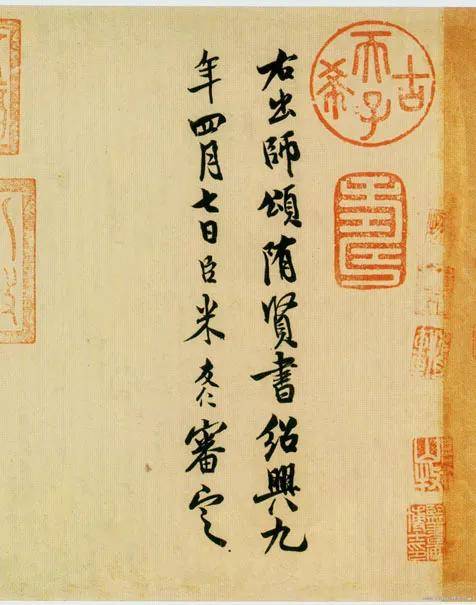 古希天子
右出師頌隋賢書紹興九
年四月七日臣米友仁審定